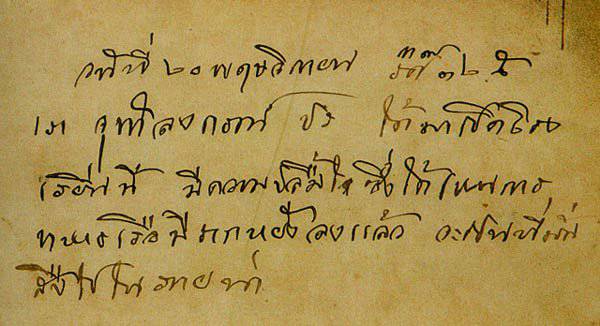 วันที่ ๒๐ พฤศจิกายน ๑๒๕
เรา จุฬาลงกรณ์ ปร ได้มาเปิดโรง
เรียนนี้ มีความปลื้มใจ ซึ่งได้เหนการ
ทหารเรือมีรากหยั่งลงแล้ว จะเปนที่มั่น
สืบไปในภายน่า